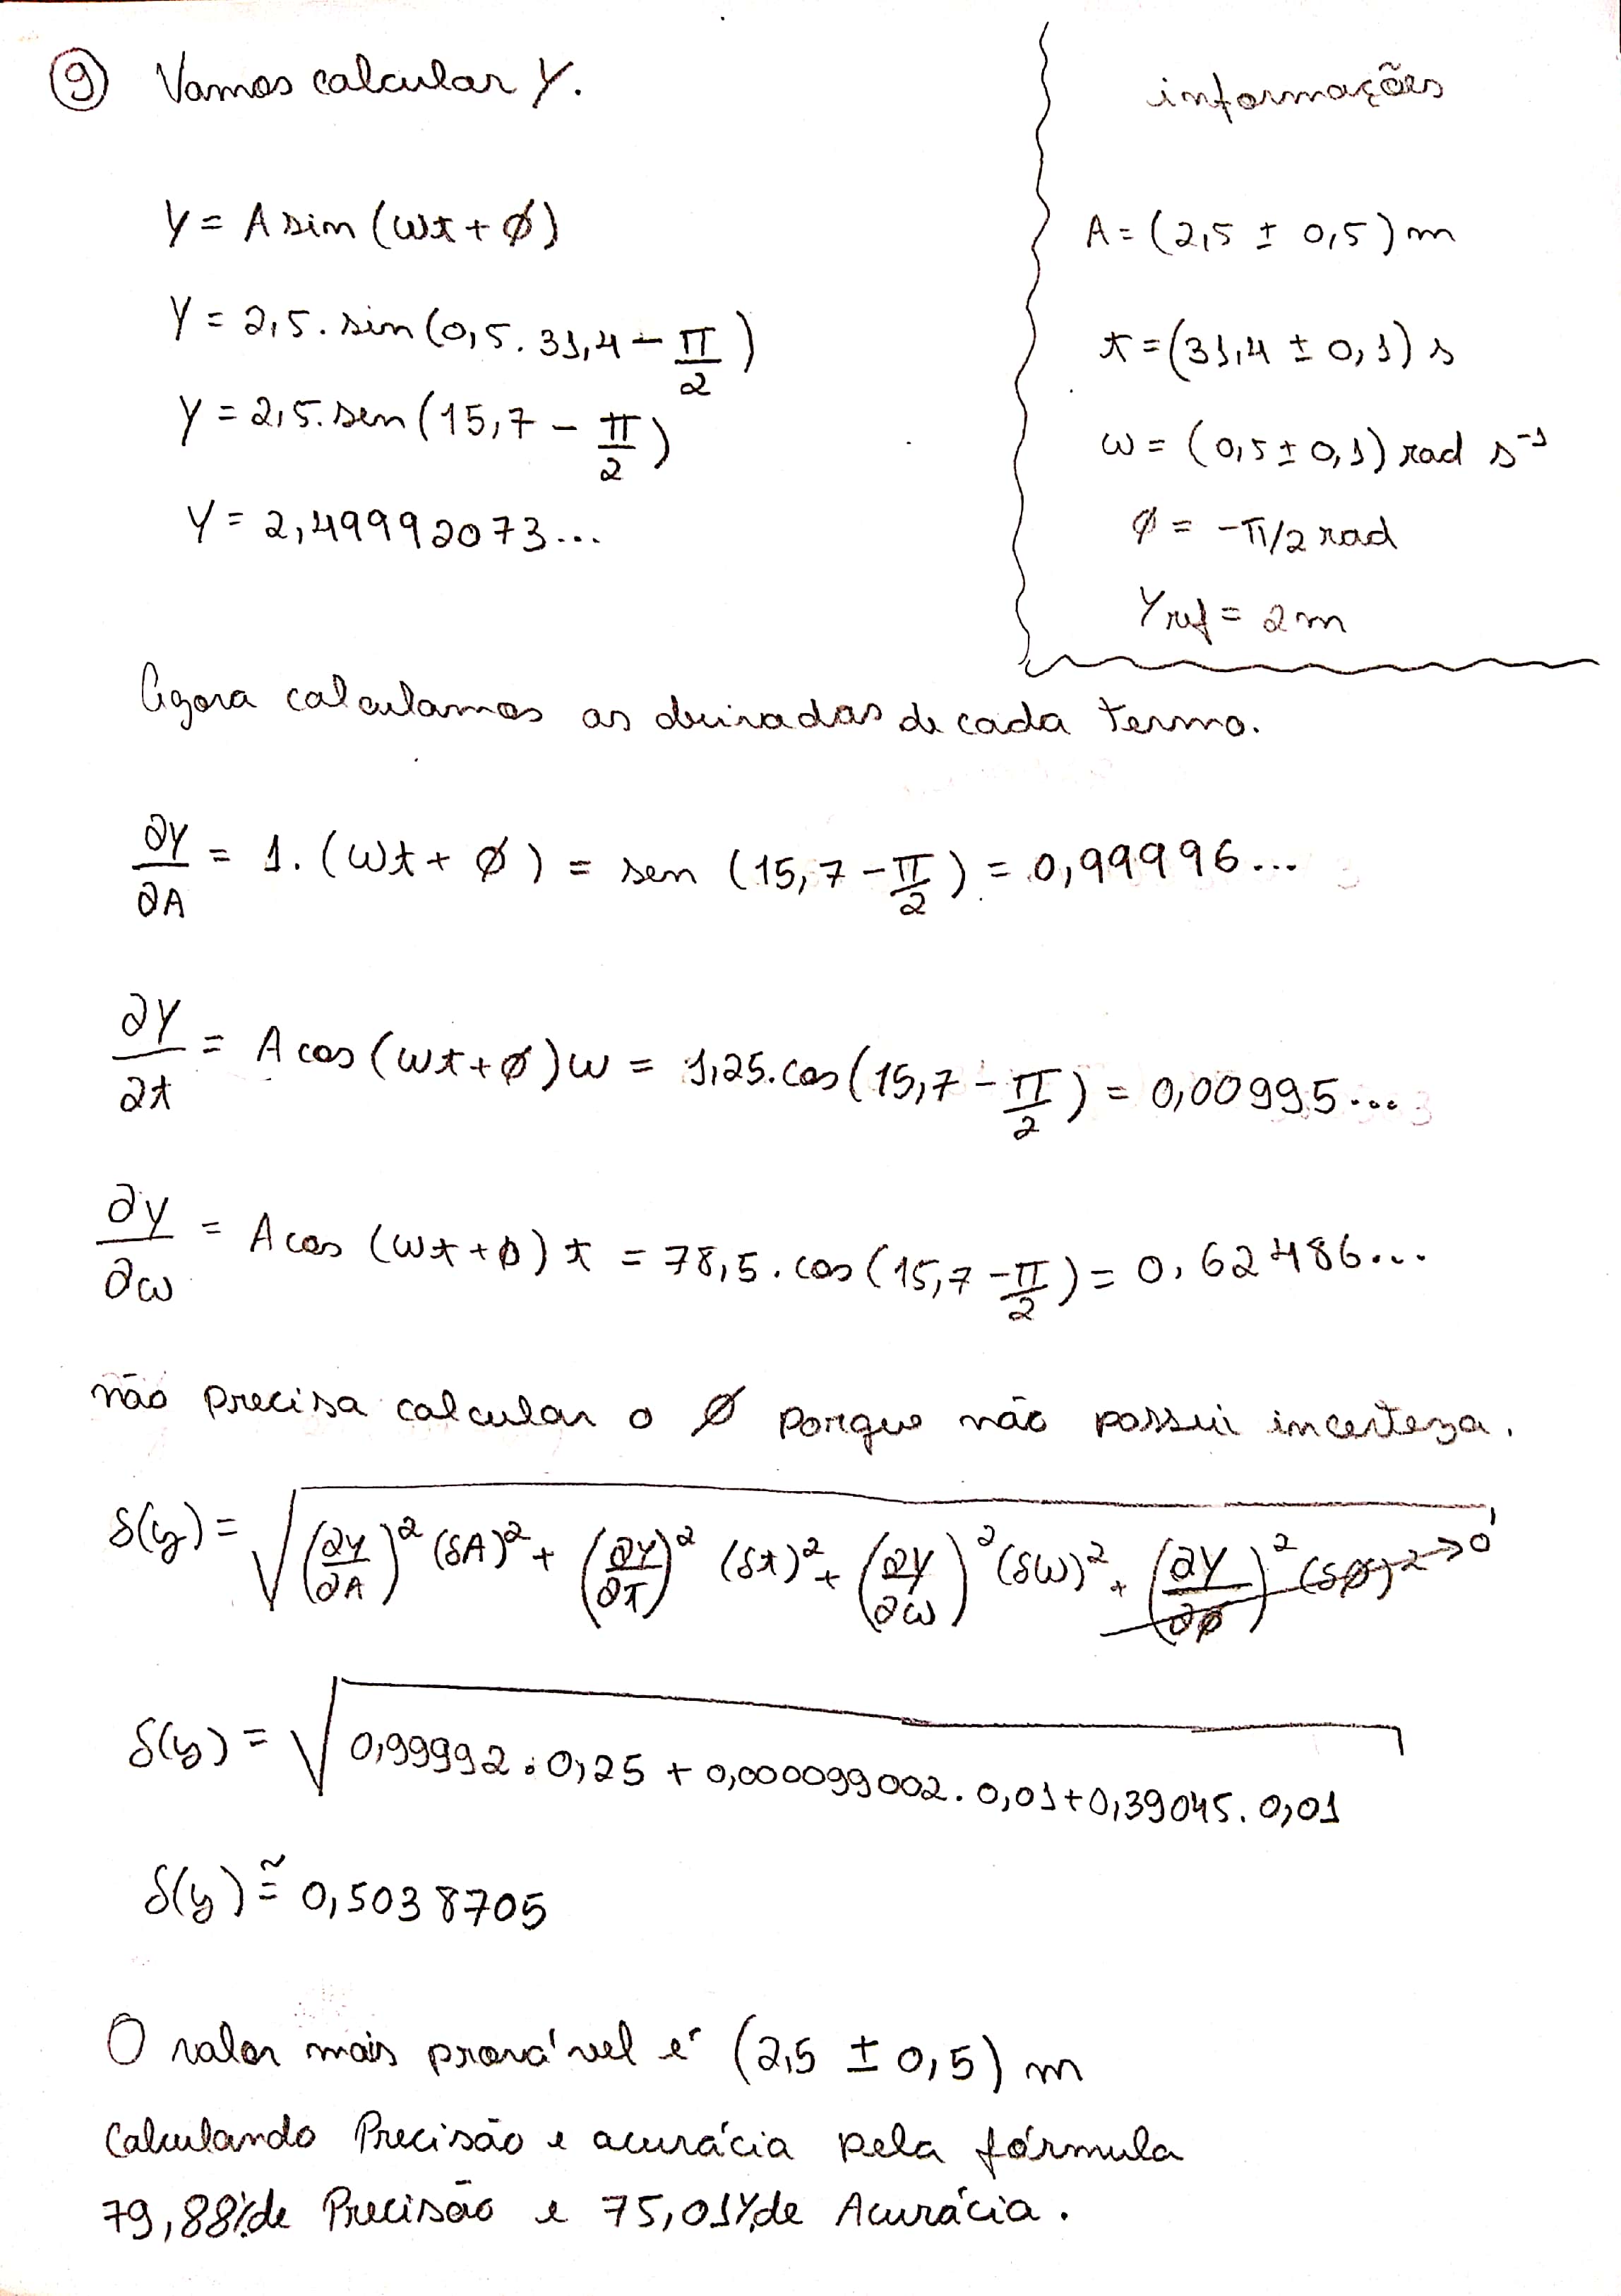 9 Vamos calcular Y.
informações
Y = A sin (ωt + ø)
A = (2,5 ± 0,5) m
Y = 2,5 . sin (0,5 . 31,4 - π/2)
t = (31,4 ± 0,1) s
Y = 2,5 . sen (15,7 - π/2)
ω = (0,5 ± 0,1) rad s⁻¹
Y = 2,49992073...
ø = -π/2 rad
Yref = 2 m
Agora calculamos as derivadas de cada termo.
∂Y/∂A = 1 . (ωt + ø) = sen (15,7 - π/2) = 0,99996...
∂Y/∂t = A cos (ωt + ø) ω = 1,25 . cos (15,7 - π/2) = 0,00995...
∂Y/∂ω = A cos (ωt + ø) t = 78,5 . cos (15,7 - π/2) = 0,62486...
não precisa calcular o ø porque não possui incerteza.
δ(y) = √((∂Y/∂A)² (δA)² + (∂Y/∂T)² (δt)² + (∂Y/∂ω)² (δω)² + (∂Y/∂ø)² (δø)² → 0
δ(y) = √(0,99992 . 0,25 + 0,000099002 . 0,01 + 0,39045 . 0,01
δ(y) ≅ 0,5038705
O valor mais provável é (2,5 ± 0,5) m
Calculando Precisão e acurácia pela fórmula
79,88% de Precisão e 75,01% de Acurácia.